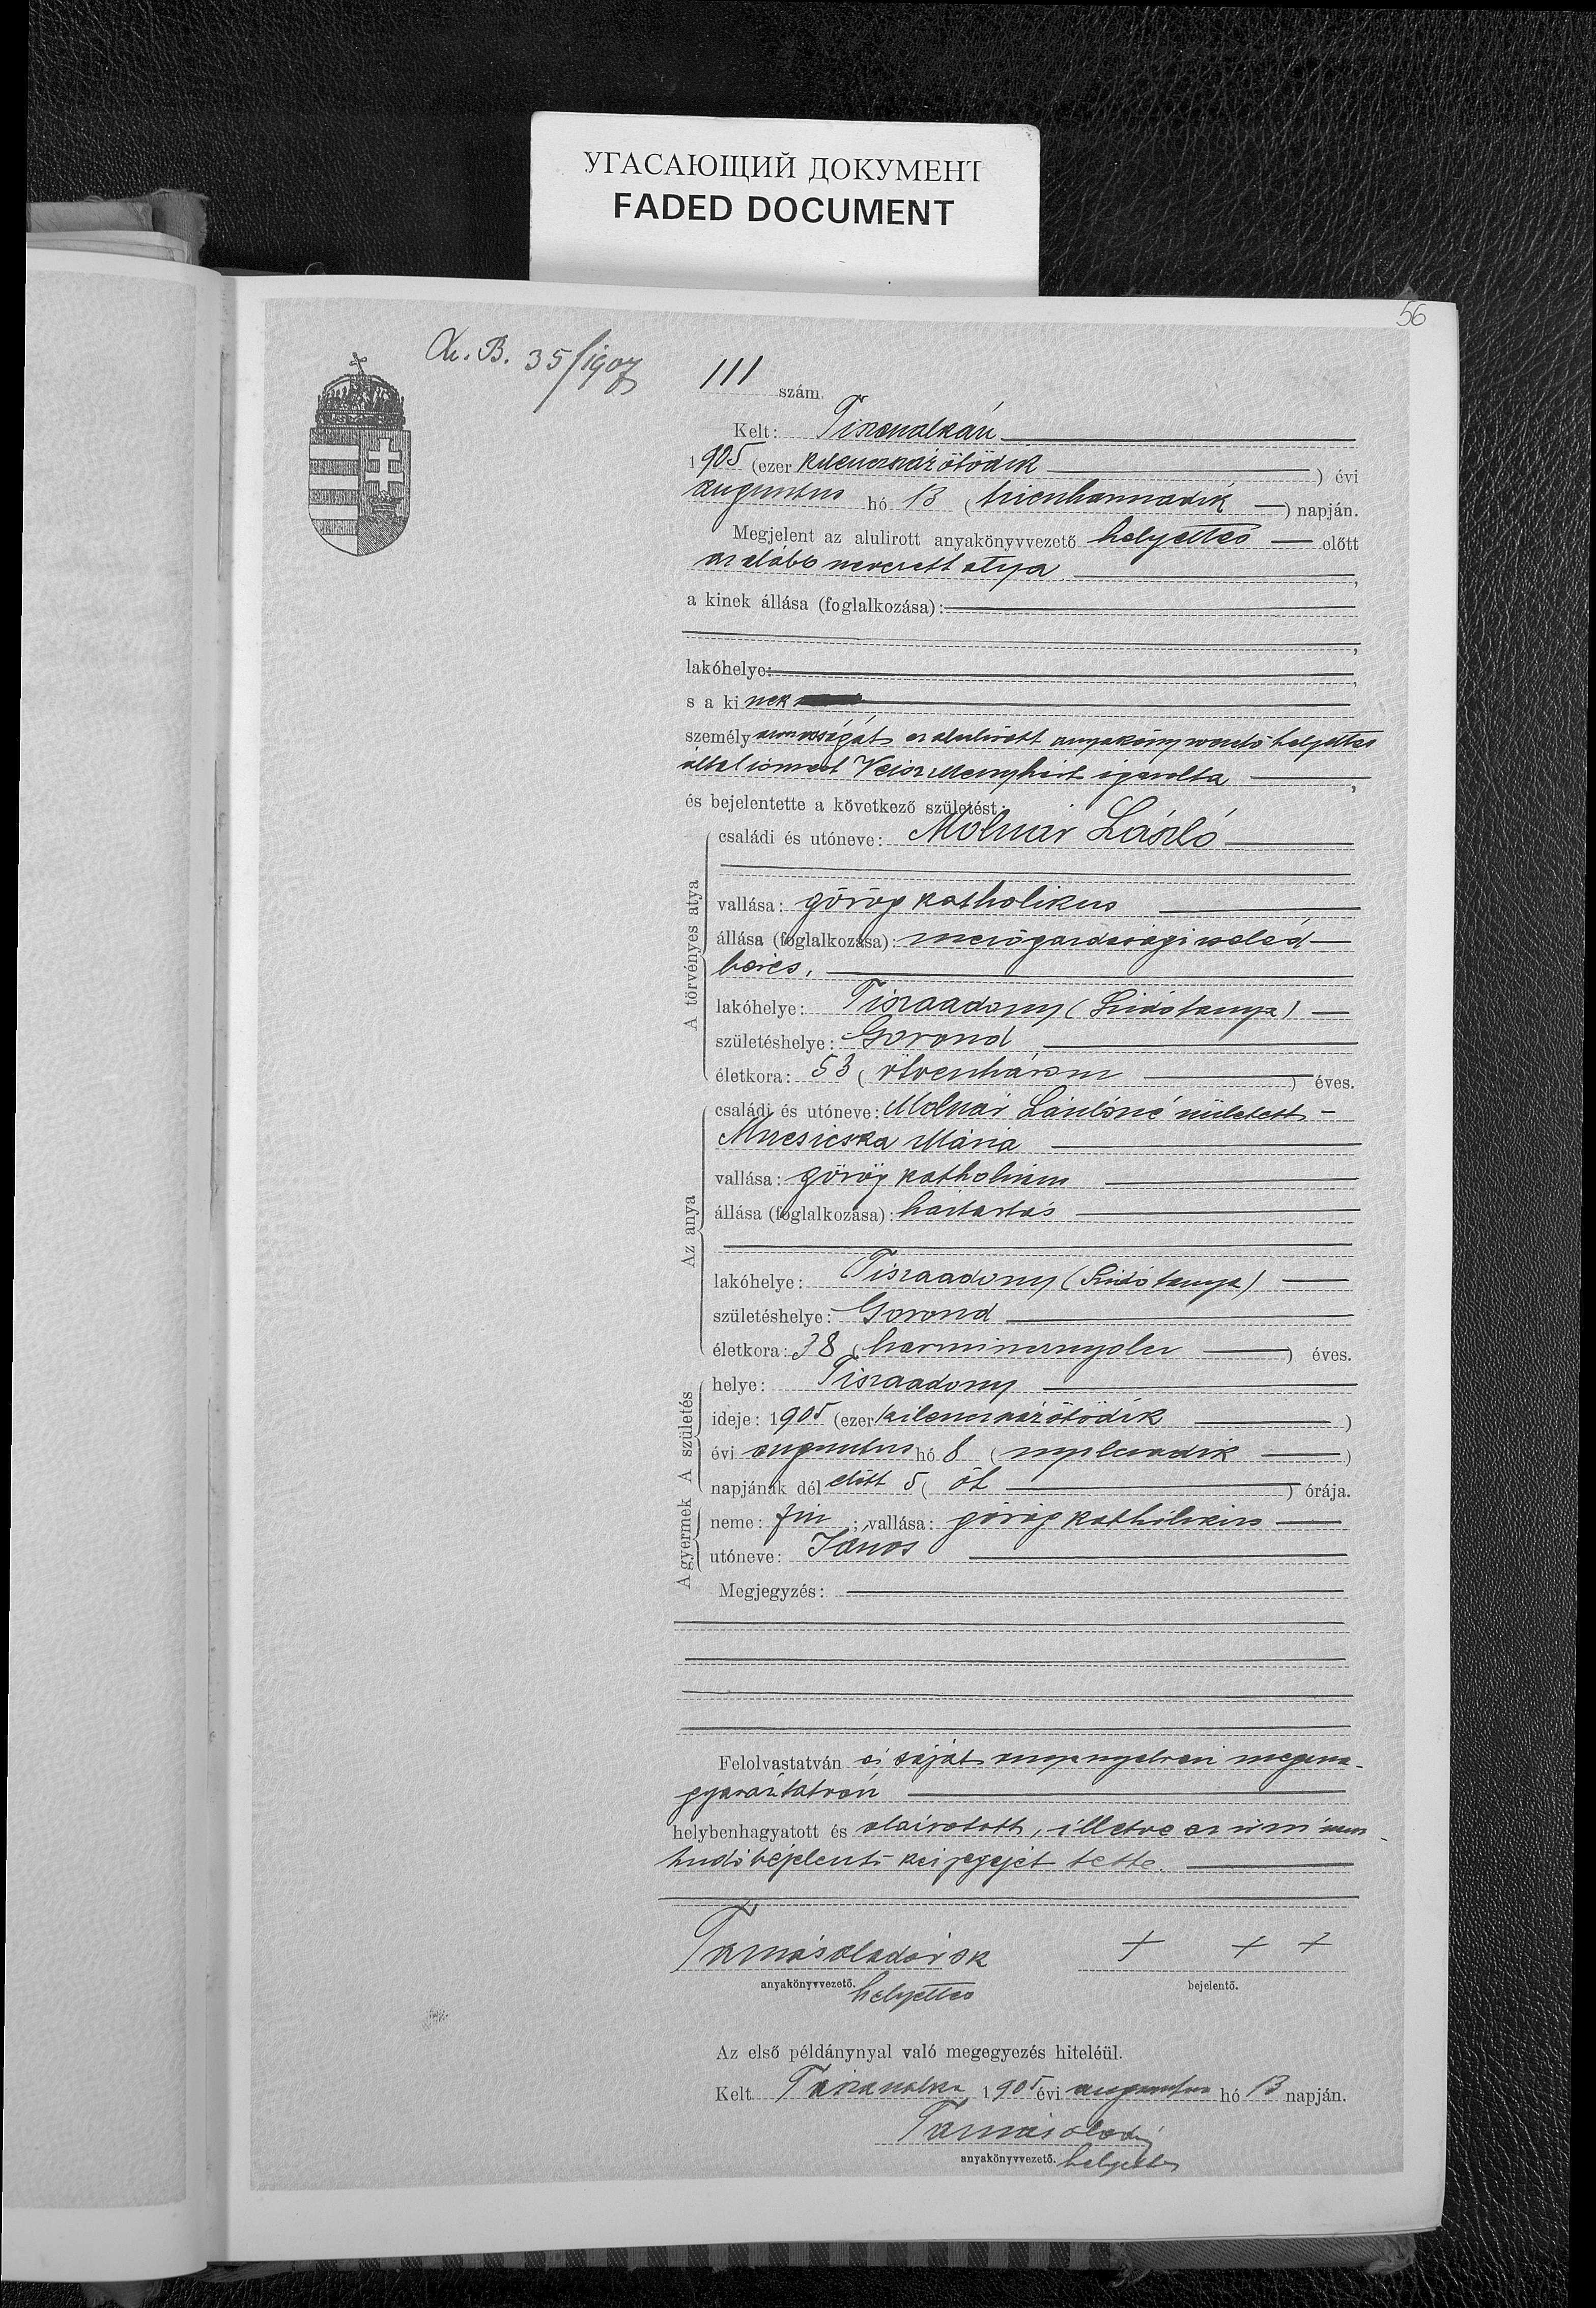 УГАСАЮЩИЙ ДОКУМЕНТ
FADED DOCUMENT
56
B. 35/1907
111 szám.
Kelt: Tiszaszalkán
1905 (ezer kilenczszázötödik ) évi
augusztus hó 13 ( tizenharmadik ) napján.
Megjelent az alulirott anyakönyvvezető helyettes előtt
az alább nevezett atya,
a kinek állása (foglalkozása):
lakóhelye:
s a kinek
személyazonosságát az alulirott anyakönyvvezető helyettes
által ismert Veisz Menyhért igazolta,
és bejelentette a következő születést:
A törvényes atya
családi és utóneve: Molnár László
vallása: görög katholikus
állása (foglalkozása): mezőgazdasági cseléd
béres,
lakóhelye: Tiszaadony ( tanya)
születéshelye: Gorond
életkora: 53 ( ötvenhárom ) éves.
Az anya
családi és utóneve: Molnár Lászlóné született
Mária
vallása: görög katholikus
állása (foglalkozása): háztartás
lakóhelye: Tiszaadony ( tanya)
születéshelye: Gorond
életkora: 38 ( harmincznyolcz ) éves.
A születés
helye: Tiszaadony
ideje: 1905 (ezer kilenczszázötödik )
évi augusztus hó 8 ( nyolczadik )
napjának délelőtt 5 ( öt ) órája.
A gyermek
neme: fiu ; vallása: görög katholikus
utóneve: János
Megjegyzés:
Felolvastatván és saját anyanyelvén megma-
gyaráztatván
helybenhagyatott és aláíratott, illetve az írni nem
tudó bejelentő kézjegyét tette.
Tamás Aladár sk + + +
anyakönyvvezető. helyettes bejelentő.
Az első példánynyal való megegyezés hiteléül.
Kelt Tiszaszalka, 1905 évi augusztus hó 13 napján.
Tamás Aladár
anyakönyvvezető. helyettes